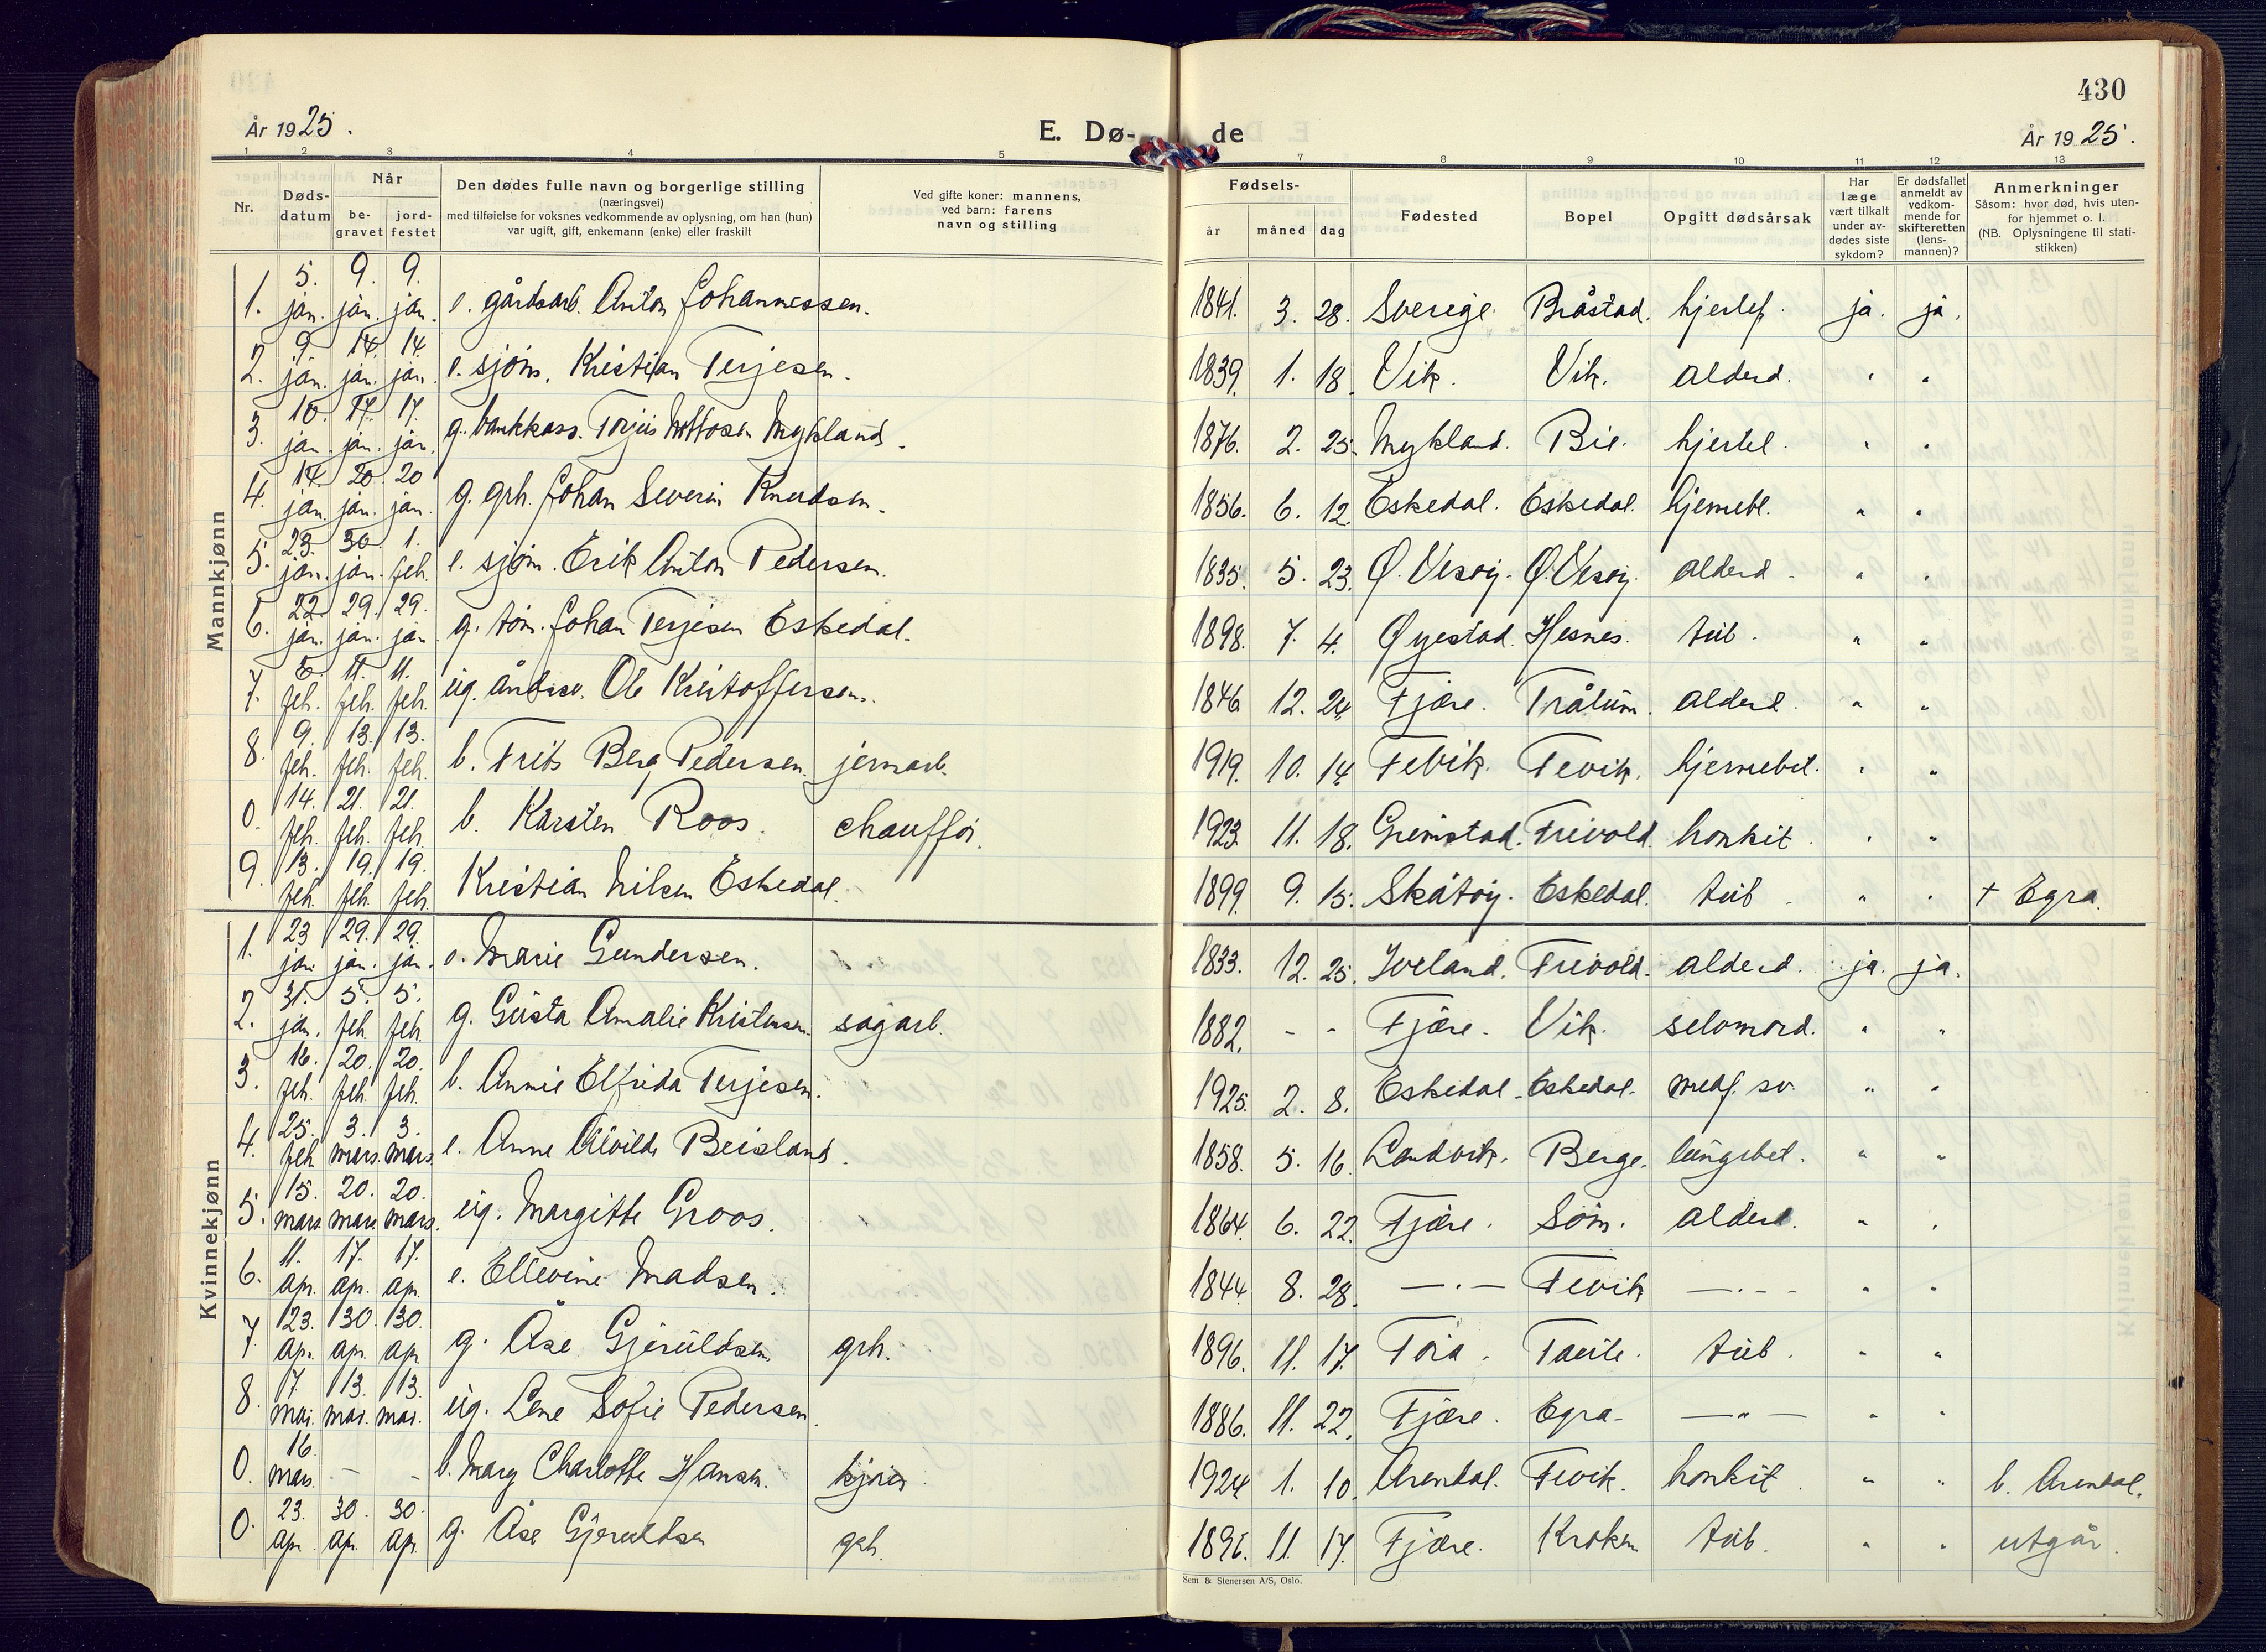 430
År 1925.
E. Dø-de
År 1925.
1 2 3 4 5 7 8 9 10 11 12 13
Nr.
Døds-datum
Når
be-gravet
jord-festet
Den dødes fulle navn og borgerlige stilling
(næringsvei)
med tilføielse for voksnes vedkommende av oplysning, om han (hun)
var ugift, gift, enkemann (enke) eller fraskilt
Ved gifte koner: mannens,
ved barn: farens
navn og stilling
Fødsels-
år måned dag
Fødested
Bopel
Opgitt dødsårsak
Har læge vært tilkalt under av-dødes siste sykdom?
Er dødsfallet anmeldt av vedkom-mende for skifteretten (lens-mannen)?
Anmerkninger
Såsom: hvor død, hvis uten-
for hjemmet o. l.
(NB. Oplysningene til stati-
stikken)
Mannkjønn
1. 5. jan. 9. jan. 9. jan. e. gårdsarb. Anton Johannessen. 1841. 3. 28. Sverige. Bråstad. hjertef. ja. ja.
2. 9. jan. 14. jan. 14. jan. e. sjøm. Kristian Terjesen. 1839. 1. 18. Vik. Vik. alderd. " "
3. 10. jan. 17. jan. 17. jan. g. bankkass. Torjus Mykland. 1876. 2. 25. Mykland. Bie. hjertel. " "
4. 14. jan. 20. jan. 20 jan. g. grh. Johan Severin Knudsen. 1856. 6. 12. Eskedal. Eskedal. hjernebl. " "
5. 23. jan. 30. jan. 1. feb. e. sjøm. Erik Anton Pedersen. 1835. 5. 23. Ø. Vesøy. Ø. Vesøy. alderd. " "
6. 22 jan. 29. jan. 29. jan. g. tøm. Johan Terjesen Eskedal. 1898. 7. 4. Øyestad. Hesnes. tub. " "
7. feb. 11. feb. 11. feb. ug. åndssv. Ole Kristoffersen. 1846 12. 24. Fjære. Trålum. alderd. " "
8. 9. feb. 13. feb. 13. feb. b. Frits Berg Pedersen. jernarb. 1919. 10. 14. Fevik. Fevik. hjernebet. " "
0. 14. feb. 21. feb. 21. feb. b. Karsten Roos. chauffør. 1923. 11. 18. Grimstad. Frivold. bronkit. " "
9. 13. feb. 19. feb. 19. feb. Kristian Nilsen Eskedal. 1899. 9. 15. Skåtøy. Eskedal. tub. " " + Egra.
Kvinnekjønn
1. 23 jan. 29. jan. 29. jan. e. Marie Gundersen. 1833. 12. 25. Iveland. Frivold. alderd. ja. ja.
2. 31. jan. 5. feb. 5. feb. g. Gusta Amalie Kristensen. sagarb. 1882. - - Fjære. Vik. selvmord. " "
3. 16. feb. 20. feb. 20. feb. b. Annie Elfrida Terjesen. 1925. 2. 8. Eskedal. Eskedal. medf. sv. " "
4. 25. feb. 3. mars. 3. mars. e. Anne Alvilde Beisland. 1858. 5. 16. Landvik. Berge. lungebet. " "
5. 15. mars 20. mars 20. mars. ug. Margitte Groos. 1864. 6. 22. Fjære. Søm. alderd. " "
6. 11. ap. 17. ap. 17. ap. e. Ellevine Madsen. 1844. 8. 28. —"— Fevik —"— " "
7. 23. ap. 30. ap. 30. ap. g. Åse Gjeruldsen. grh. 1896. 11. 17. tub. " "
8. 7. mai. 13. mai. 13. mai. ug. Lene Sofie Pedersen. 1886. 11. 22. Fjære. Egra. —"— " "
0. 16. mars. - - b. Mary Charlotte Hansen. 1924 1. 10. Arendal. Fevik. bronkit " " b. Arendal.
0. 23. ap. 30. ap. 30. ap. g. Åse Gjeruldsen grh. 1896. 11. 17. Fjære. Kroken tub. " " utgår.
Sem & Stenersen A/S, Oslo.